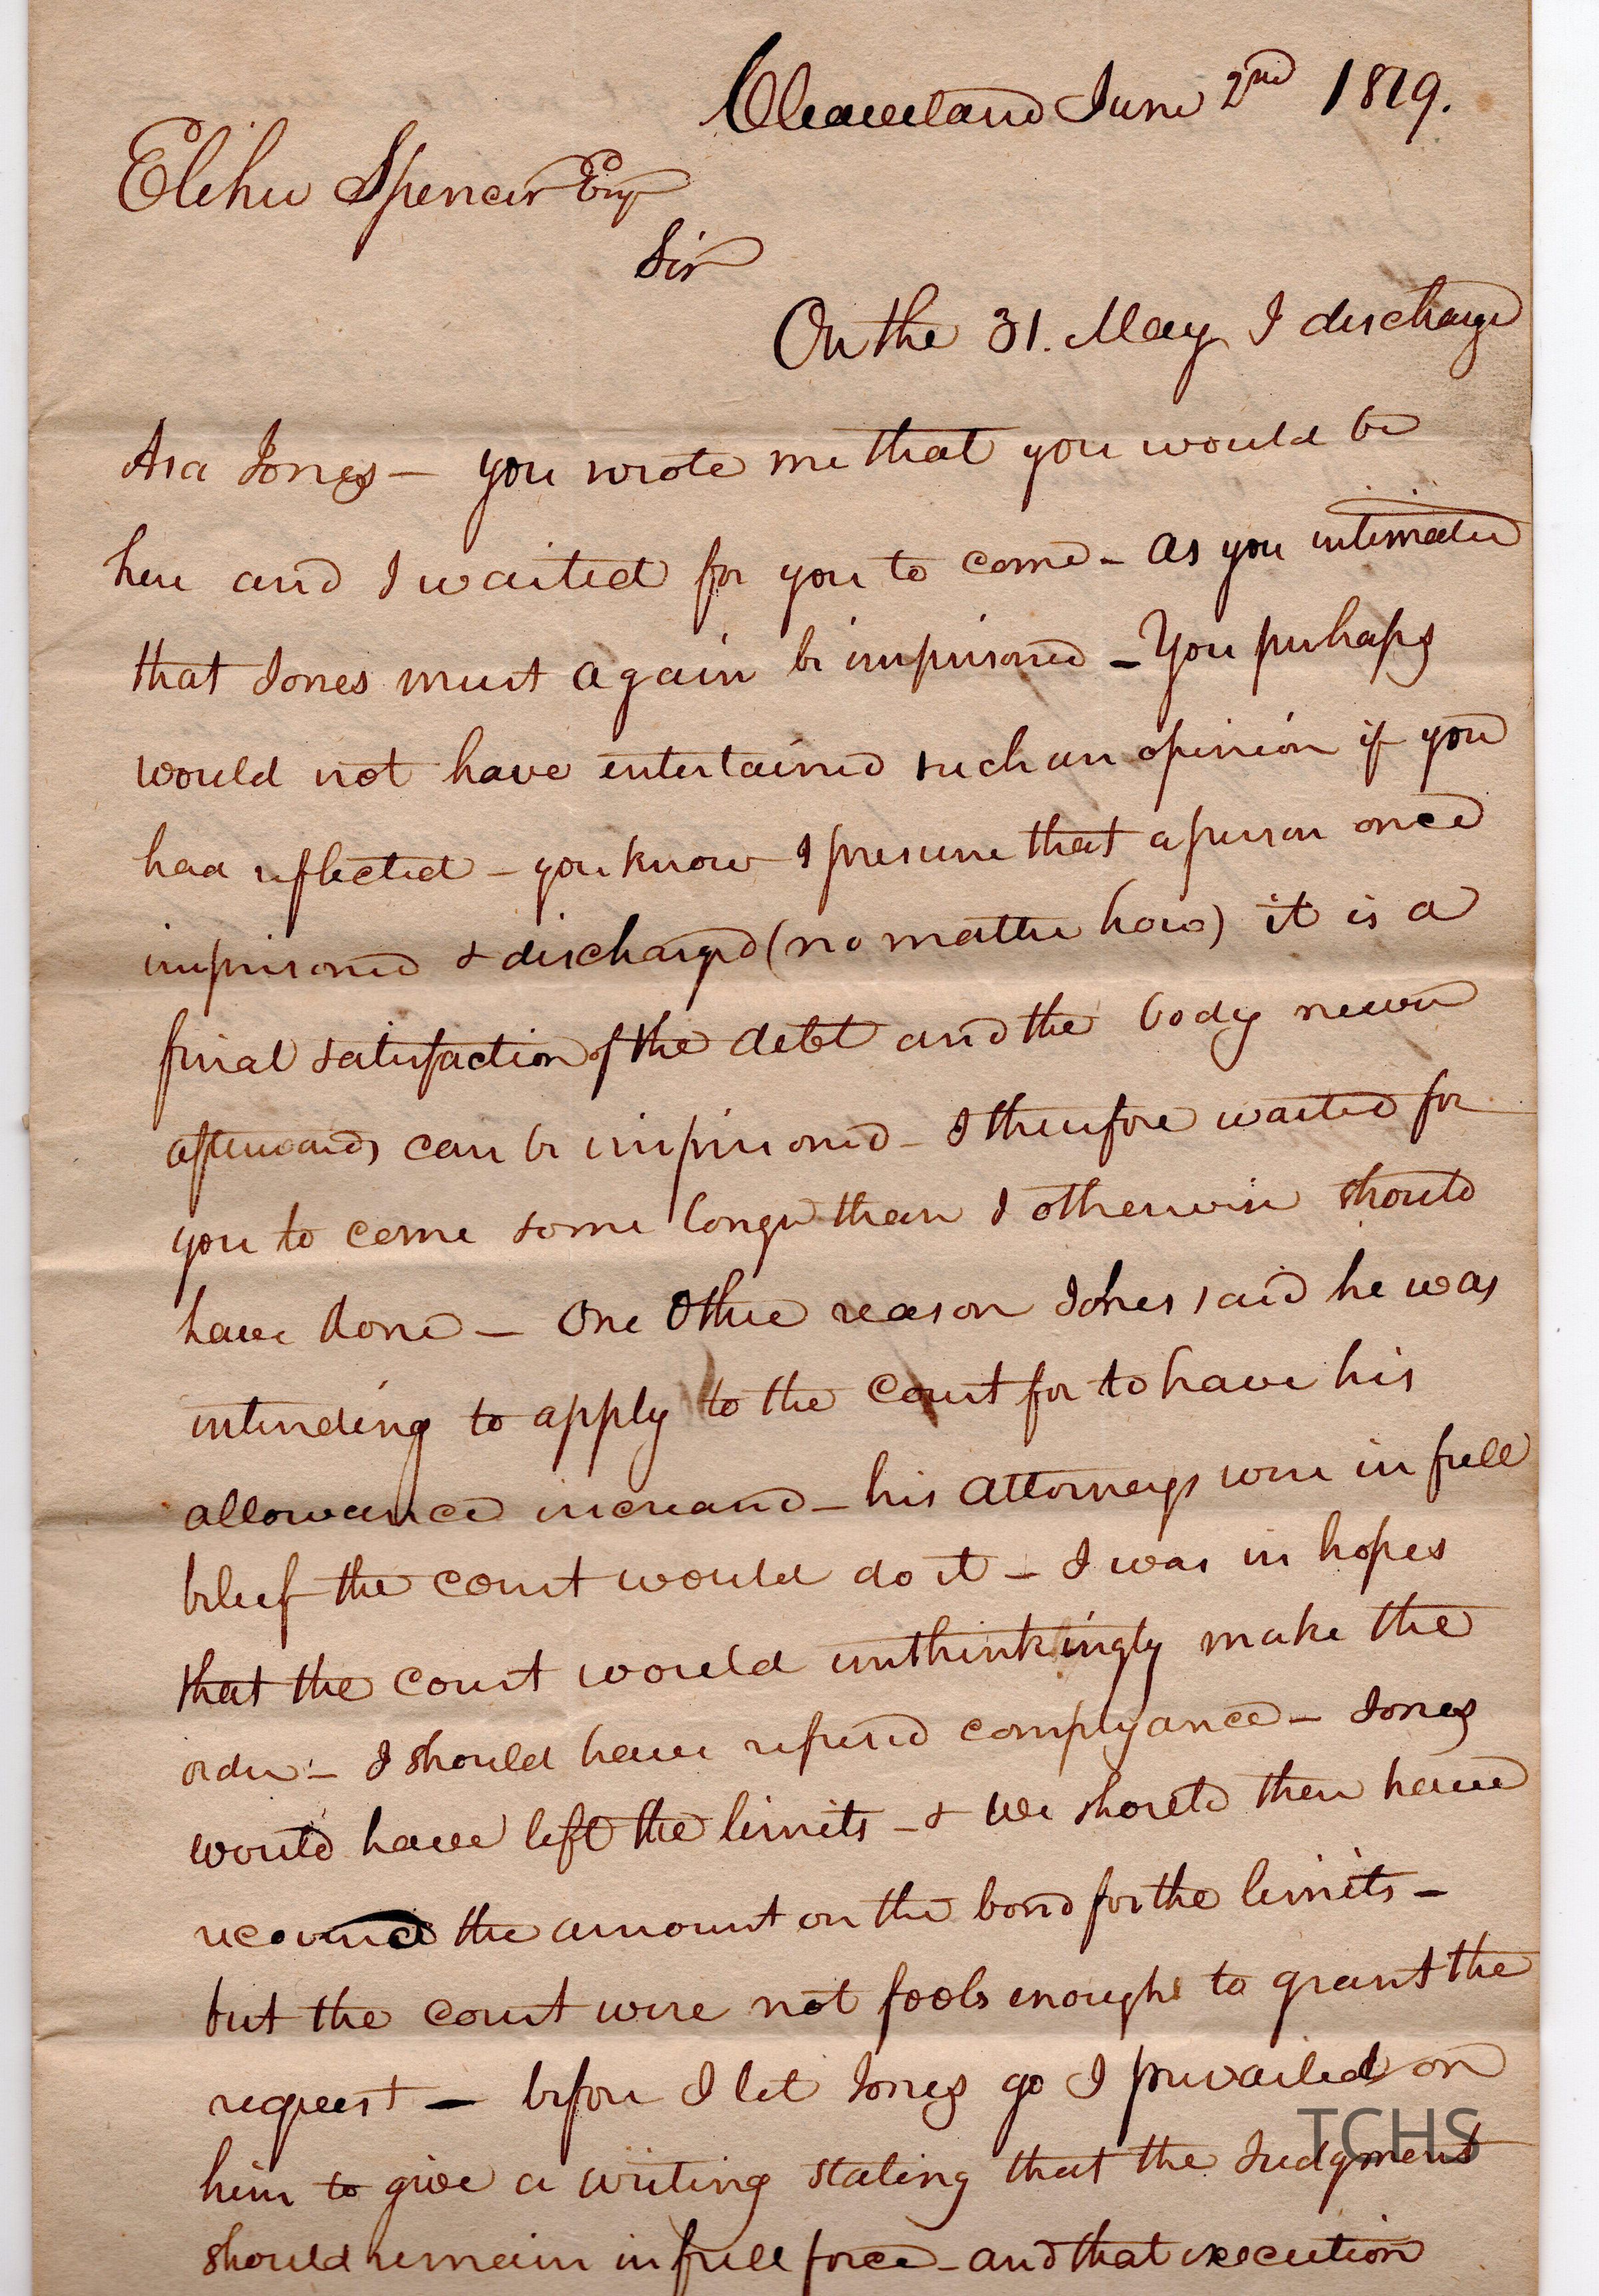 Cleaveland June 2nd 1819.
Elihu Spencer Esqr
Sir
On the 31. May I discharged
Asa Jones – you wrote me that you would be
here and I waited for you to come – as you intimated
that Jones must again be imprisoned – You perhaps
would not have entertained such an opinion if you
had reflected – you know I presume that a person once
imprisoned & discharged (no matter how) it is a
final satisfaction of the debt and the body never
afterwards can be imprisoned – I therefore waited for
you to come some longer than I otherwise should
have done – One Other reason Jones said he was
intending to apply to the Court for to have his
allowance increased – his attorneys were in full
belief the court would do it – I was in hopes
that the court would unthinkingly make the
order – I should have refused complyance – Jones
would have left the limits – & We should then have
recovered the amount on the bond for the limits –
but the court were not fools enough to grant the
request – before I let Jones go I prevailed on
him to give a writing stating that the Judgment
should remain in full force – and that execution
TCHS